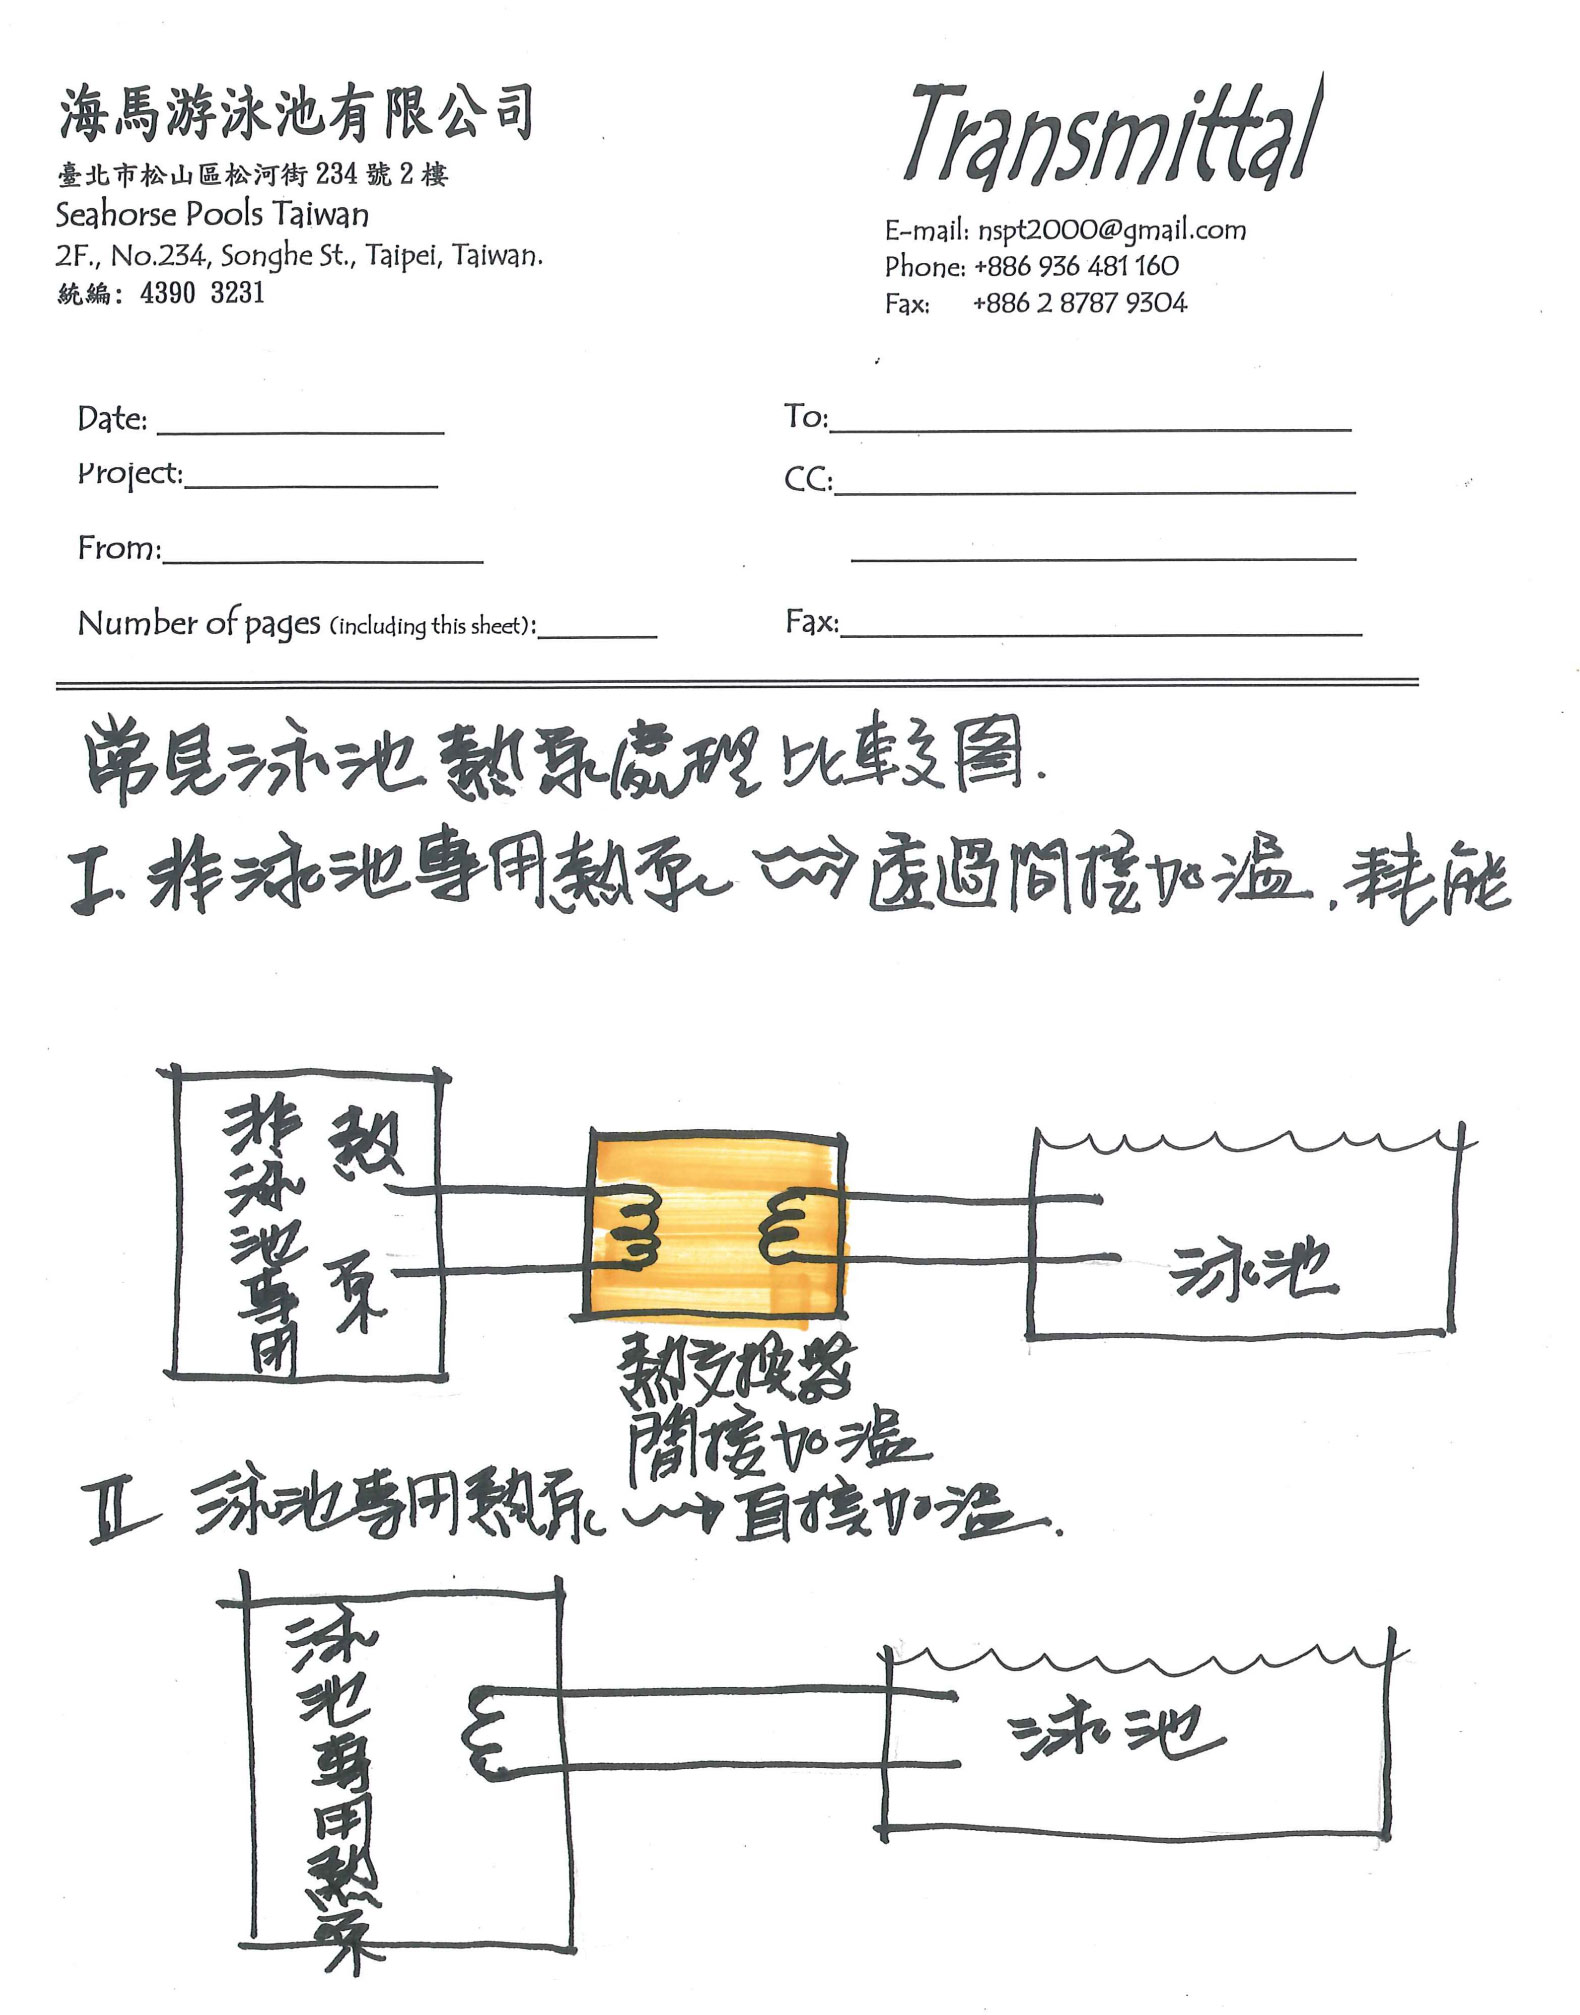 海馬游泳池有限公司
臺北市松山區松河街 234 號 2 樓
Seahorse Pools Taiwan
2F., No.234, Songhe St., Taipei, Taiwan.
統編: 4390 3231
Transmittal
E-mail: nspt2000@gmail.com
Phone: +886 936 481 160
Fax: +886 2 8787 9304
Date:
To:
Project:
CC:
From:
Number of pages (including this sheet):
Fax:
常見泳池熱泵處理比較图.
I. 非泳池專用熱泵 → 透過間接加溫. 耗能
非泳池專用
熱泵
熱交換器
間接加溫
泳池
II 泳池專用熱泵 → 直接加溫.
泳池專用熱泵
泳池